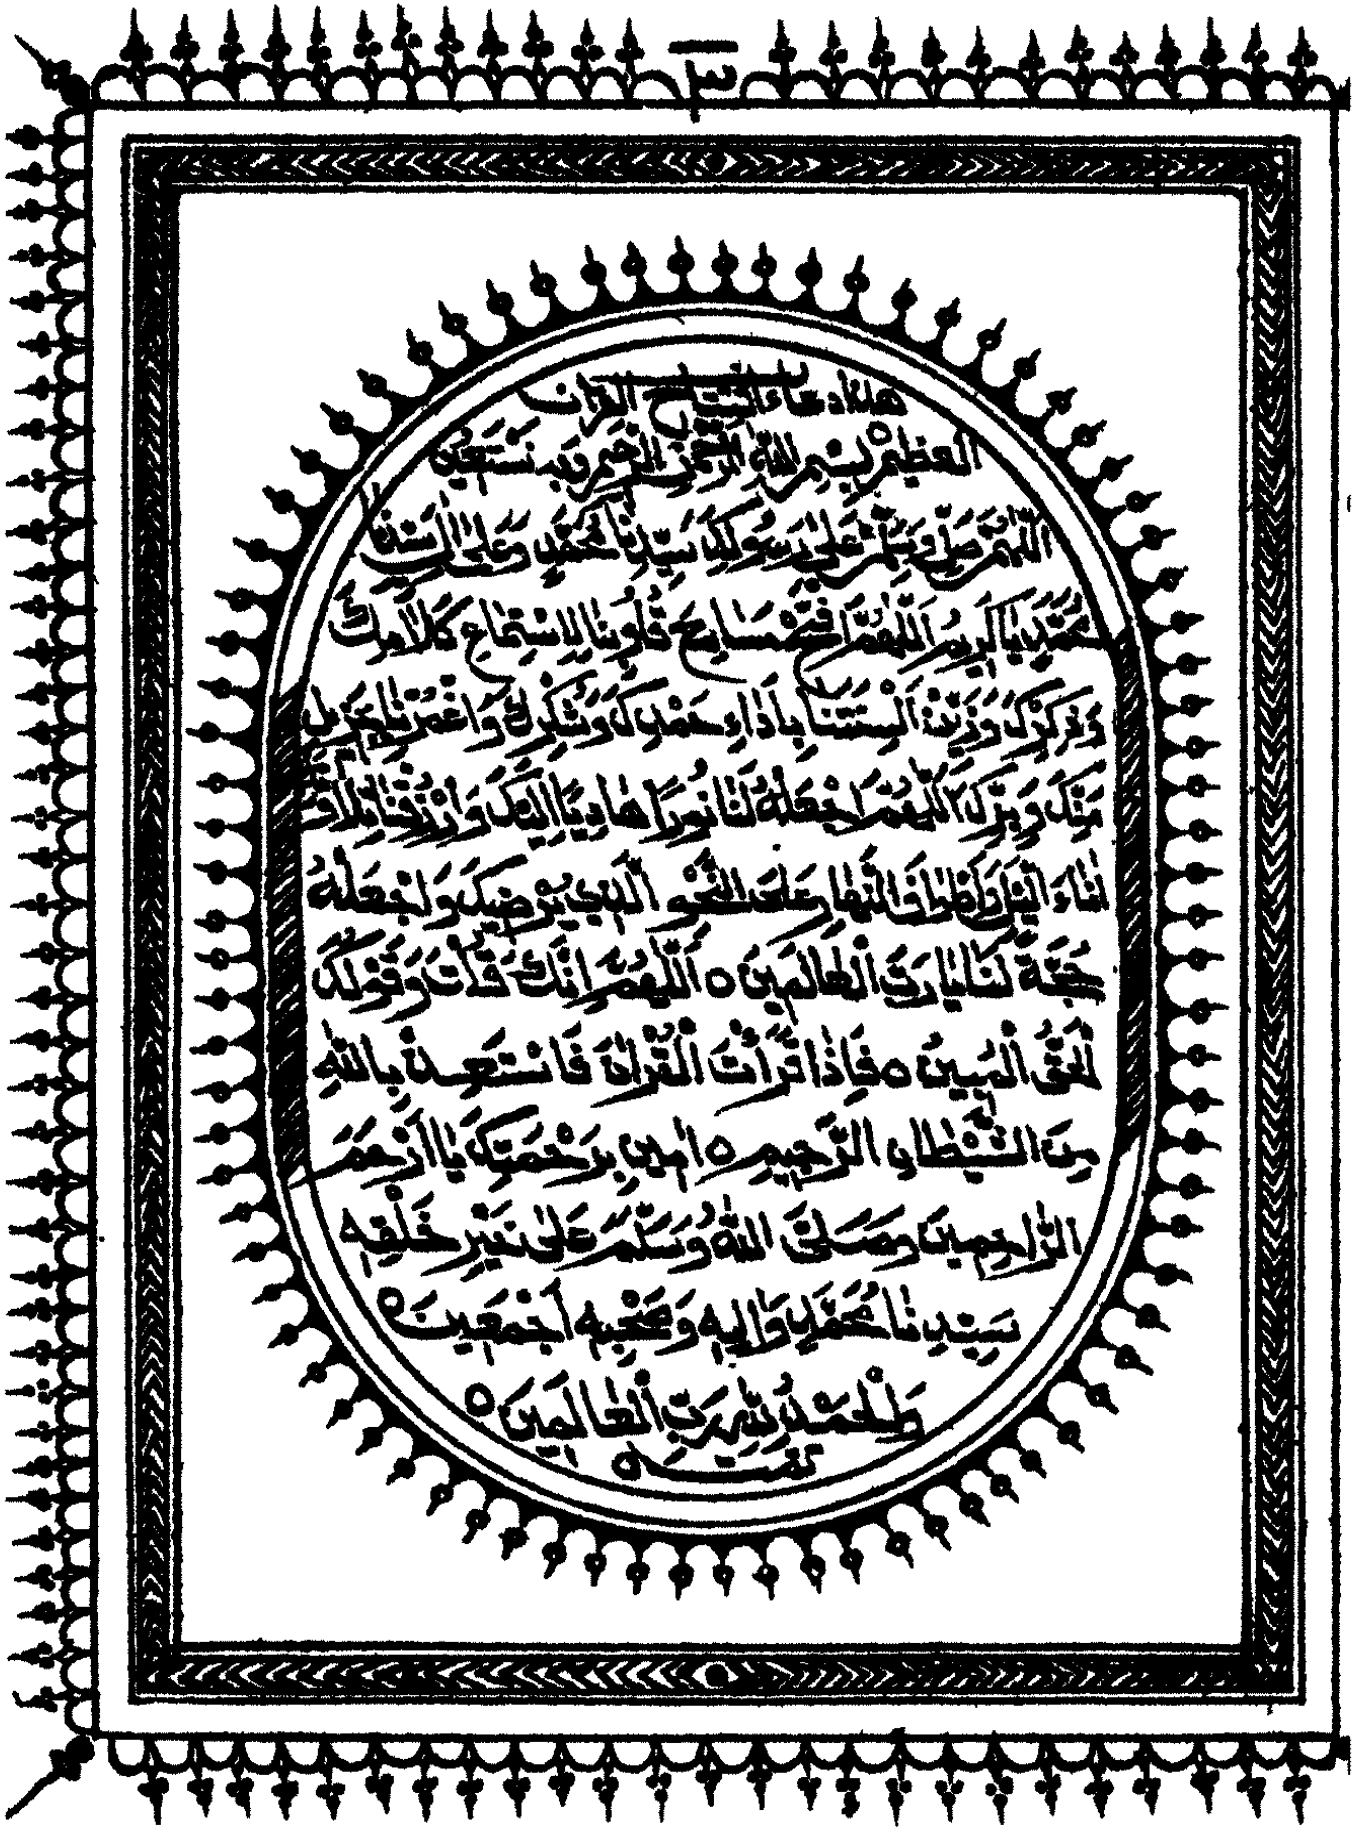 هذا دعاء افتتاح القران
العظيم بسم الله الرحمن الرحيم وبه نستعين
اللهم صل وسلم على رسولك سيدنا محمد وعلى ال سيدنا
محمد يا كريم اللهم افتح مسامع قلوبنا لاستماع كلامك
وذكرك وزين السنتنا باداء حمدك وشكرك واغمرنا بجزيل
منك وبرك اللهم اجعله لنا نورا هاديا اليك وارزقنا تلاوته
اناء الليل واطراف النهار على النحو الذي يرضيك واجعله
حجة لنا يا رب العالمين ه اللهم انك قلت وقولك
الحق المبين ه فاذا قرات القران فاستعذ بالله
من الشيطان الرجيم ه امين برحمتك يا ارحم
الراحمين وصلى الله وسلم على خير خلقه
سيدنا محمد واله وصحبه اجمعين ه
والحمد لله رب العالمين ه
تمت ه